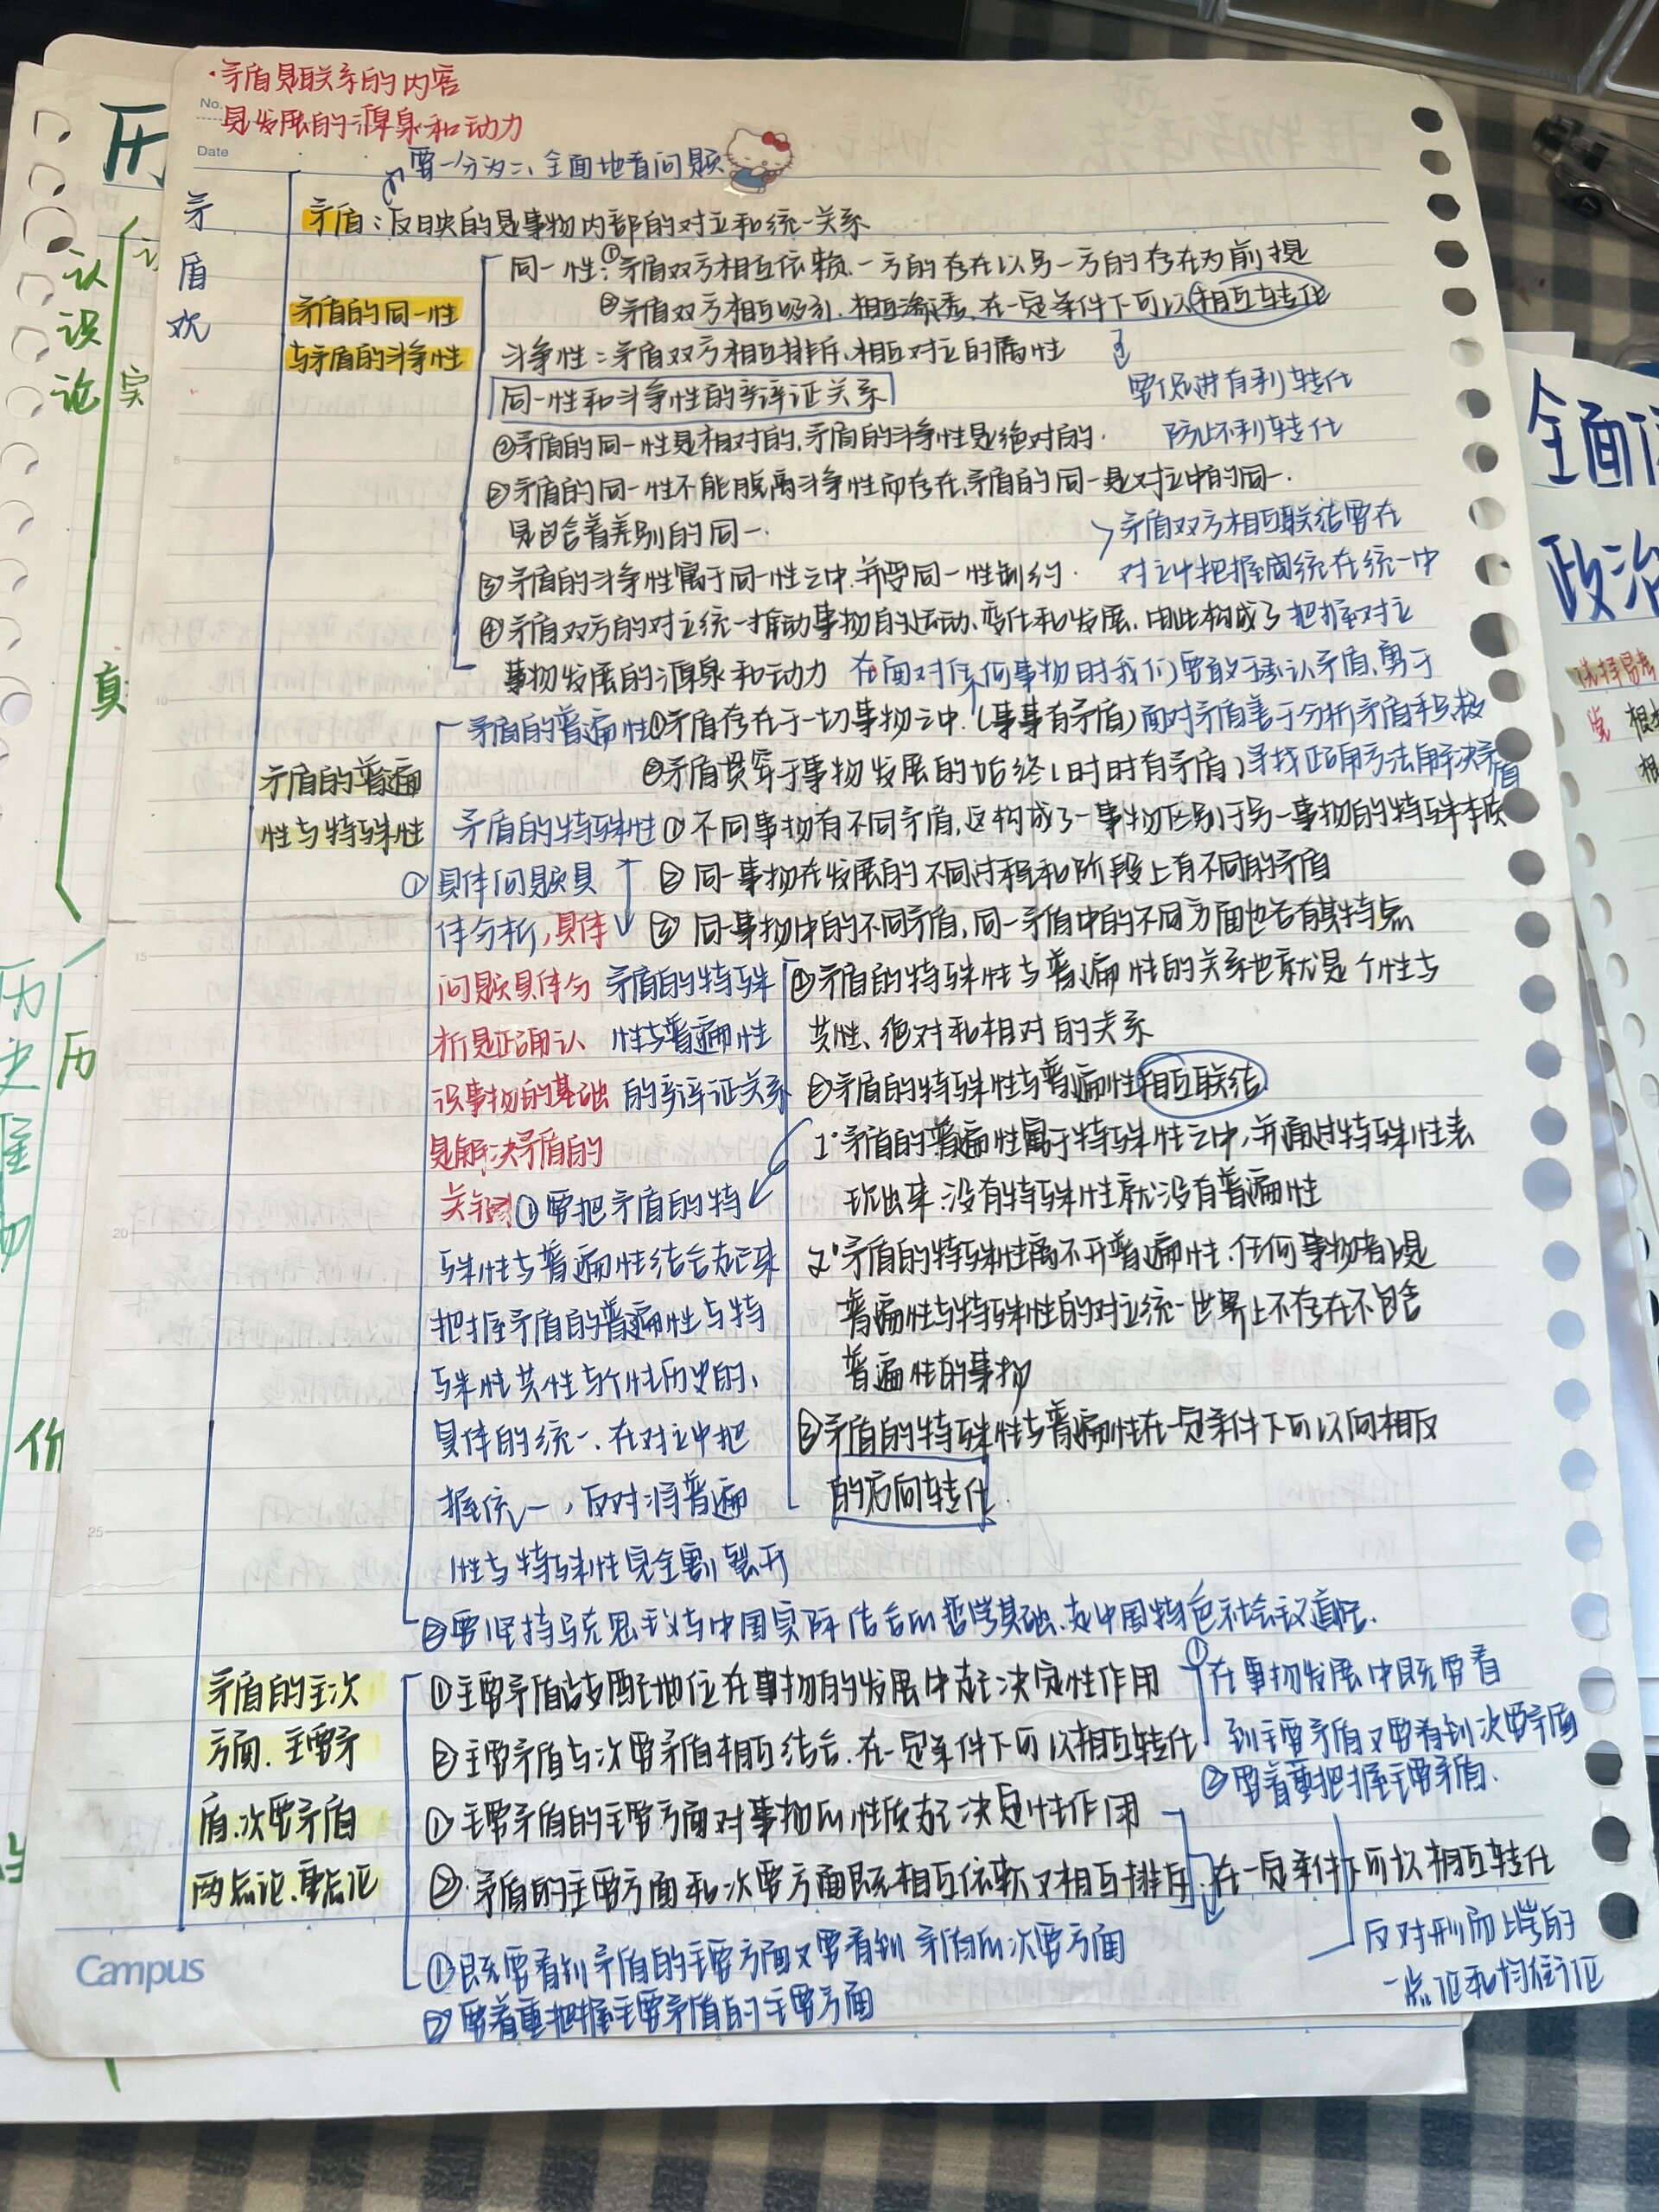 ·矛盾是联系的内容
No.
是发展的源泉和动力
Date
要一分为二、全面地看问题
矛盾观
矛盾:反映的是事物内部的对立和统一关系
矛盾的同一性
与矛盾的斗争性
同一性:①矛盾双方相互依赖、一方的存在以另一方的存在为前提
②矛盾双方相互吸引、相互渗透、在一定条件下可以相互转化
斗争性:矛盾双方相互排斥、相互对立的属性
要促进有利转化
防止不利转化
同一性和斗争性的辩证关系
①矛盾的同一性是相对的,矛盾的斗争性是绝对的.
②矛盾的同一性不能脱离斗争性而存在,矛盾的同一是对立中的同一.
是包含着差别的同一.
矛盾双方相互联结要在
对立中把握统一在统一中
把握对立
③矛盾的斗争性寓于同一性之中.并受同一性制约.
④矛盾双方的对立统一推动事物的运动、变化和发展.由此构成了
事物发展的源泉和动力
在面对任何事物时我们要敢于承认矛盾,勇于
面对矛盾善于分析矛盾积极
寻找正确方法解决矛盾
矛盾的普遍
性与特殊性
矛盾的普遍性①矛盾存在于一切事物之中.(事事有矛盾)
②矛盾贯穿于事物发展的始终(时时有矛盾)
矛盾的特殊性①不同事物有不同矛盾,这构成了一事物区别于另一事物的特殊本质
②同一事物在发展的不同过程和阶段上有不同的矛盾
③同一事物中的不同矛盾,同一矛盾中的不同方面也各有其特点
①具体问题具
体分析,具体
问题具体分
析是正确认
识事物的基础
是解决矛盾的
关键
矛盾的特殊
性与普遍性
的辩证关系
①矛盾的特殊性与普遍性的关系也就是个性与
共性、绝对和相对的关系
②矛盾的特殊性与普遍性相互联结
1°矛盾的普遍性寓于特殊性之中,并通过特殊性表
现出来.没有特殊性就没有普遍性
2°矛盾的特殊性离不开普遍性.任何事物都是
普遍性与特殊性的对立统一世界上不存在不包含
普遍性的事物
③矛盾的特殊性与普遍性在一定条件下可以向相反
的方向转化.
①要把矛盾的特
殊性与普遍性结合起来
把握矛盾的普遍性与特
殊性共性与个性历史的、
具体的统一、在对立中把
握统一,反对将普遍
性与特殊性完全割裂开
②要坚持马克思主义与中国实际结合的哲学基础、走中国特色社会主义道路.
矛盾的主次
方面、主要矛
盾.次要矛盾
两点论、重点论
①主要矛盾占支配地位在事物的发展中起决定性作用
②主要矛盾与次要矛盾相互结合.在一定条件下可以相互转化
①在事物发展中既要看
到主要矛盾又要看到次要矛盾
②要着重把握主要矛盾.
①主要矛盾的主要方面对事物的性质起决定性作用
②矛盾的主要方面和次要方面既相互依赖又相互排斥.在一定条件下可以相互转化
①既要看到矛盾的主要方面又要看到矛盾的次要方面
②要着重把握主要矛盾的主要方面
反对形而上学的
一点论和均衡论
Campus
认识论
实
真
历
历史唯
历
价
全面
政治
根